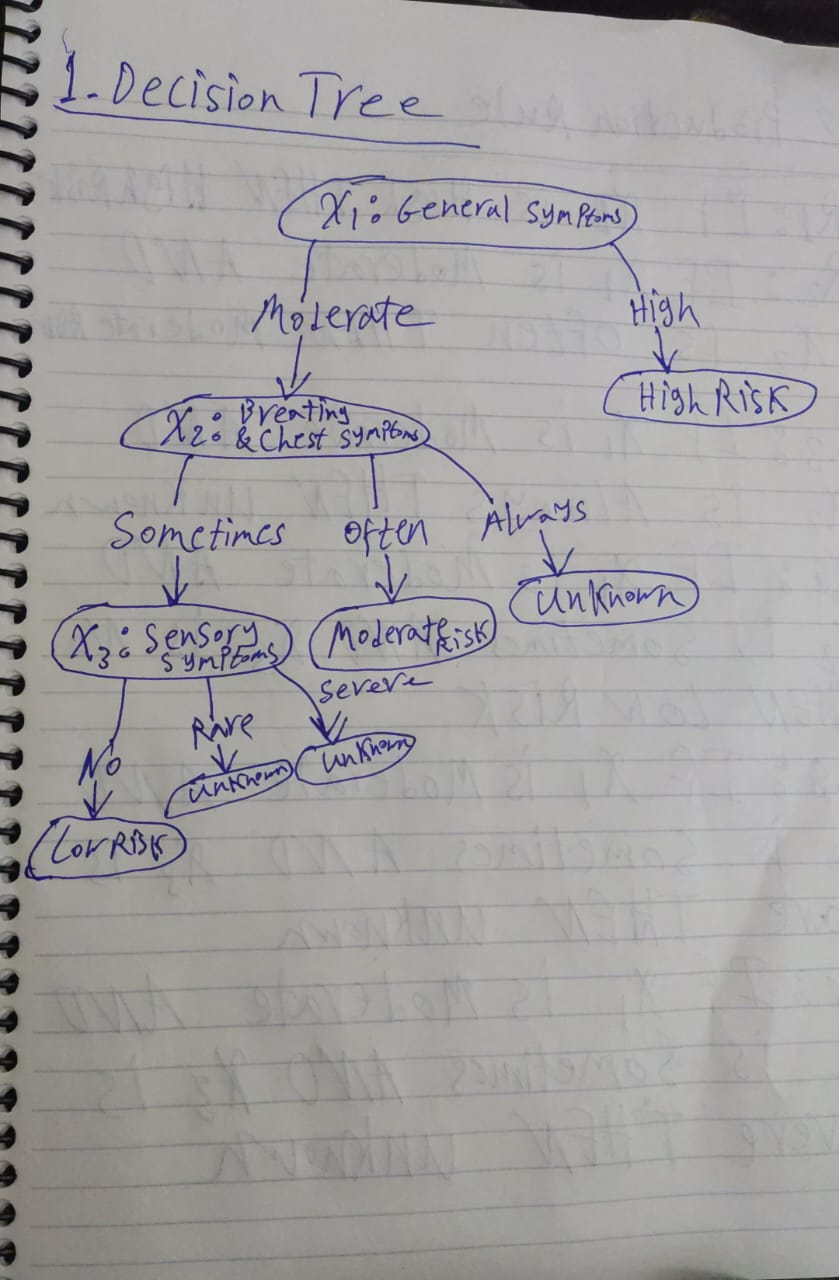 1. Decision Tree
X1: General Symptoms
Moderate
High
High Risk
X2: Breating
& Chest symptoms
Sometimes
often
Always
Unknown
X3: Sensory
symptoms
Moderate
Risk
Severe
No
Rare
Unknown
Unknown
Low Risk